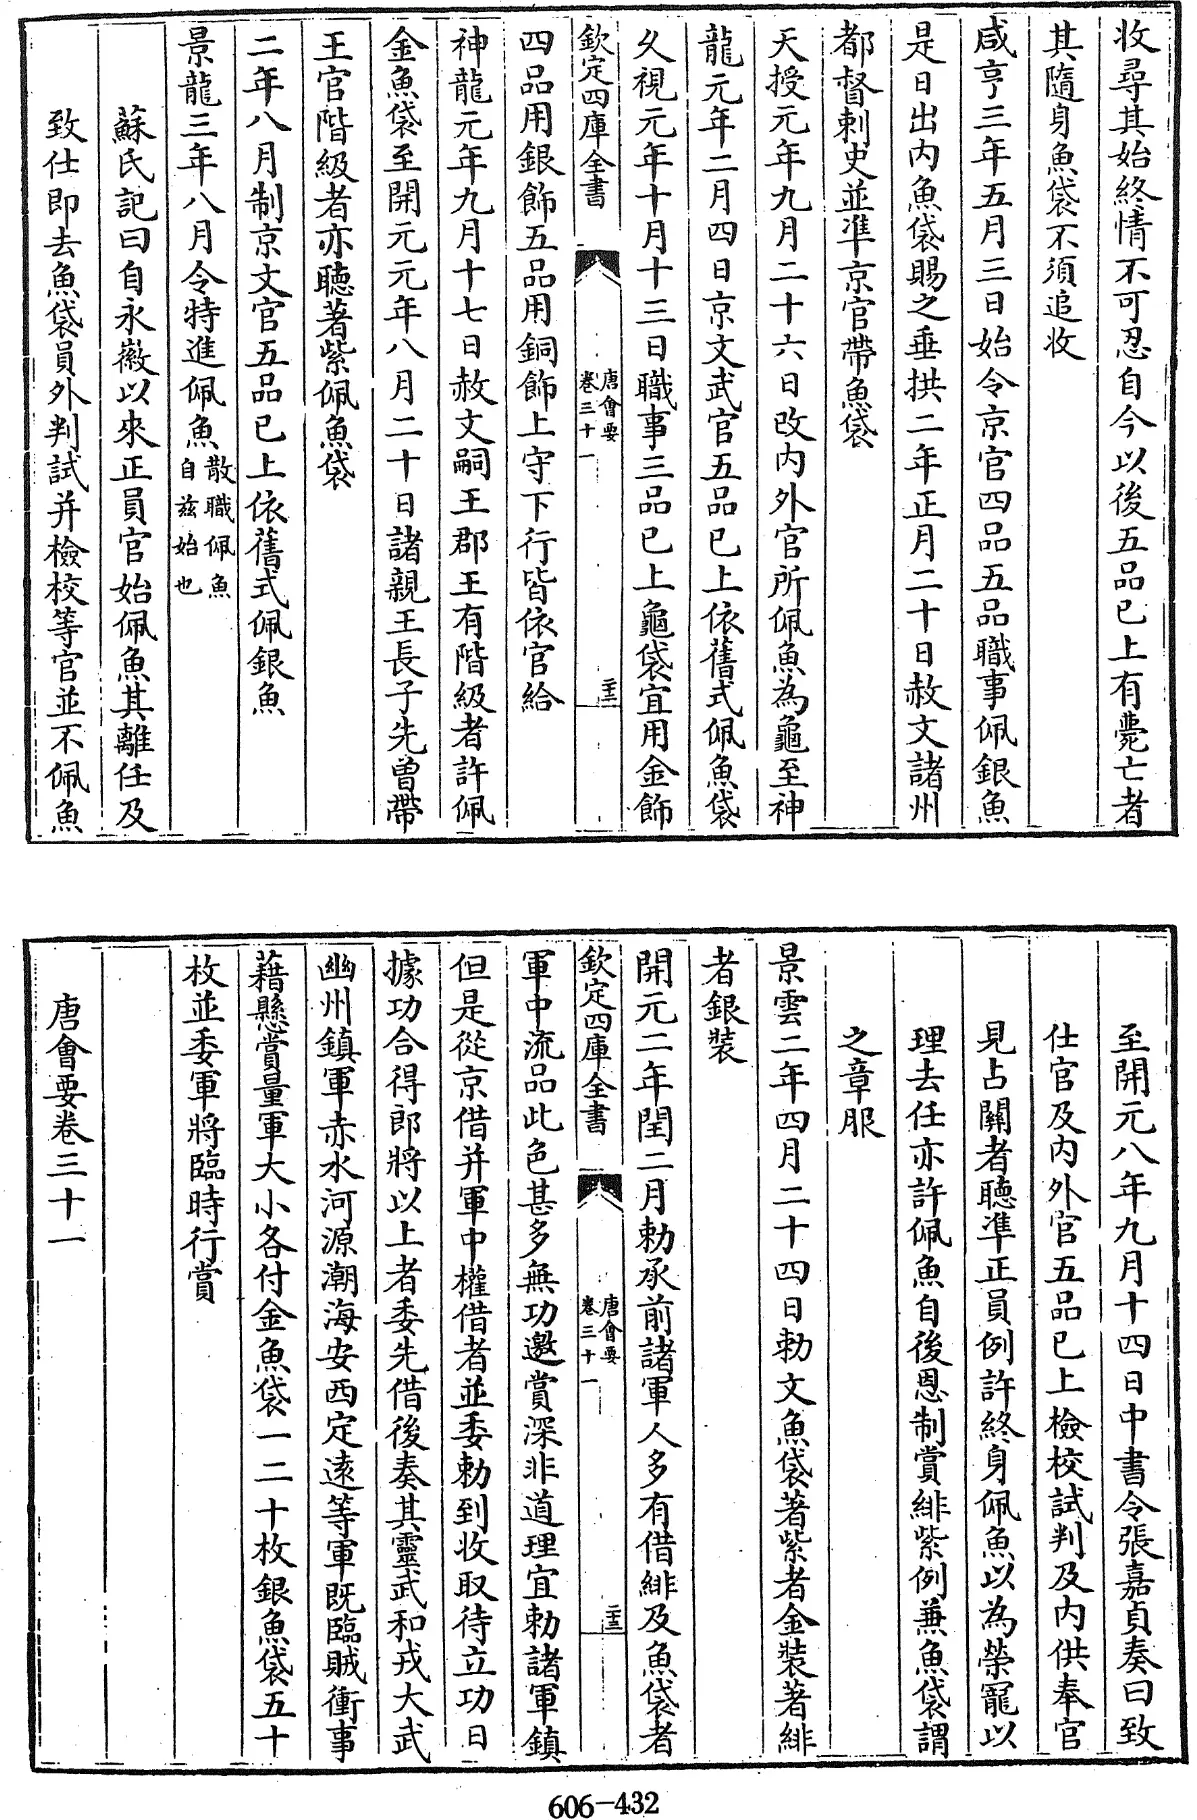 收尋其始終情不可忍自今以後五品已上有薨亡者
其隨身魚袋不須追收
咸亨三年五月三日始令京官四品五品職事佩銀魚
是日出内魚袋賜之垂拱二年正月二十日赦文諸州
都督刺史並準京官帶魚袋
天授元年九月二十六日改内外官所佩魚為龜至神
龍元年二月四日京文武官五品已上依舊式佩魚袋
久視元年十月十三日職事三品已上龜袋宜用金飾
欽定四庫全書
唐會要
卷三十一
二十三
四品用銀飾五品用銅飾上守下行皆依官給
神龍元年九月十七日赦文嗣王郡王有階級者許佩
金魚袋至開元元年八月二十日諸親王長子先曾帶
王官階級者亦聽著紫佩魚袋
二年八月制京文官五品已上依舊式佩銀魚
景龍三年八月令特進佩魚散職佩魚
自兹始也
蘇氏記曰自永徽以來正員官始佩魚其離任及
致仕即去魚袋員外判試并檢校等官並不佩魚
至開元八年九月十四日中書令張嘉貞奏曰致
仕官及内外官五品已上檢校試判及内供奉官
見占闕者聽準正員例許終身佩魚以為榮寵以
理去任亦許佩魚自後恩制賞緋紫例兼魚袋謂
之章服
景雲二年四月二十四日勅文魚袋著紫者金裝著緋
者銀裝
開元二年閏二月勅承前諸軍人多有借緋及魚袋者
欽定四庫全書
唐會要
卷三十一
二十三
軍中流品此色甚多無功邀賞深非道理宜勅諸軍鎮
但是從京借并軍中權借者並委勅到收取待立功日
據功合得郎將以上者委先借後奏其靈武和戎大武
幽州鎮軍赤水河源瀚海安西定遠等軍既臨賊衝事
藉懸賞量軍大小各付金魚袋一二十枚銀魚袋五十
枚並委軍將臨時行賞
唐會要卷三十一
606-432